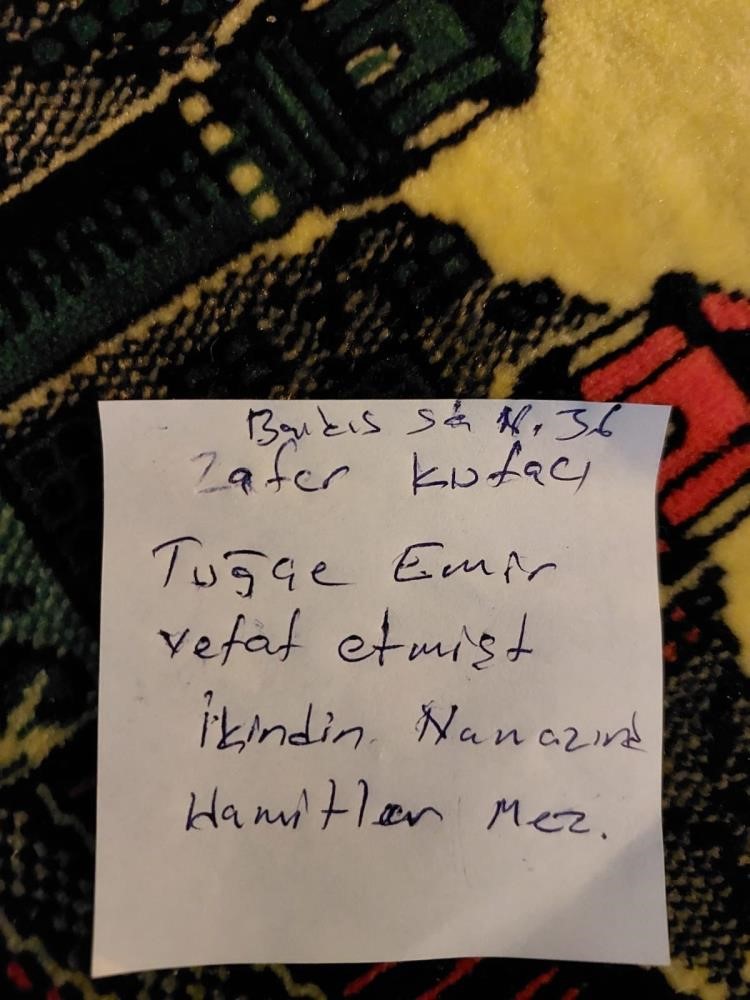 Barkış sk N. 36
Zafer Kutacı
Tuğçe Emir
vefat etmişt
İkindin Namazınd
Hamitler Mez.